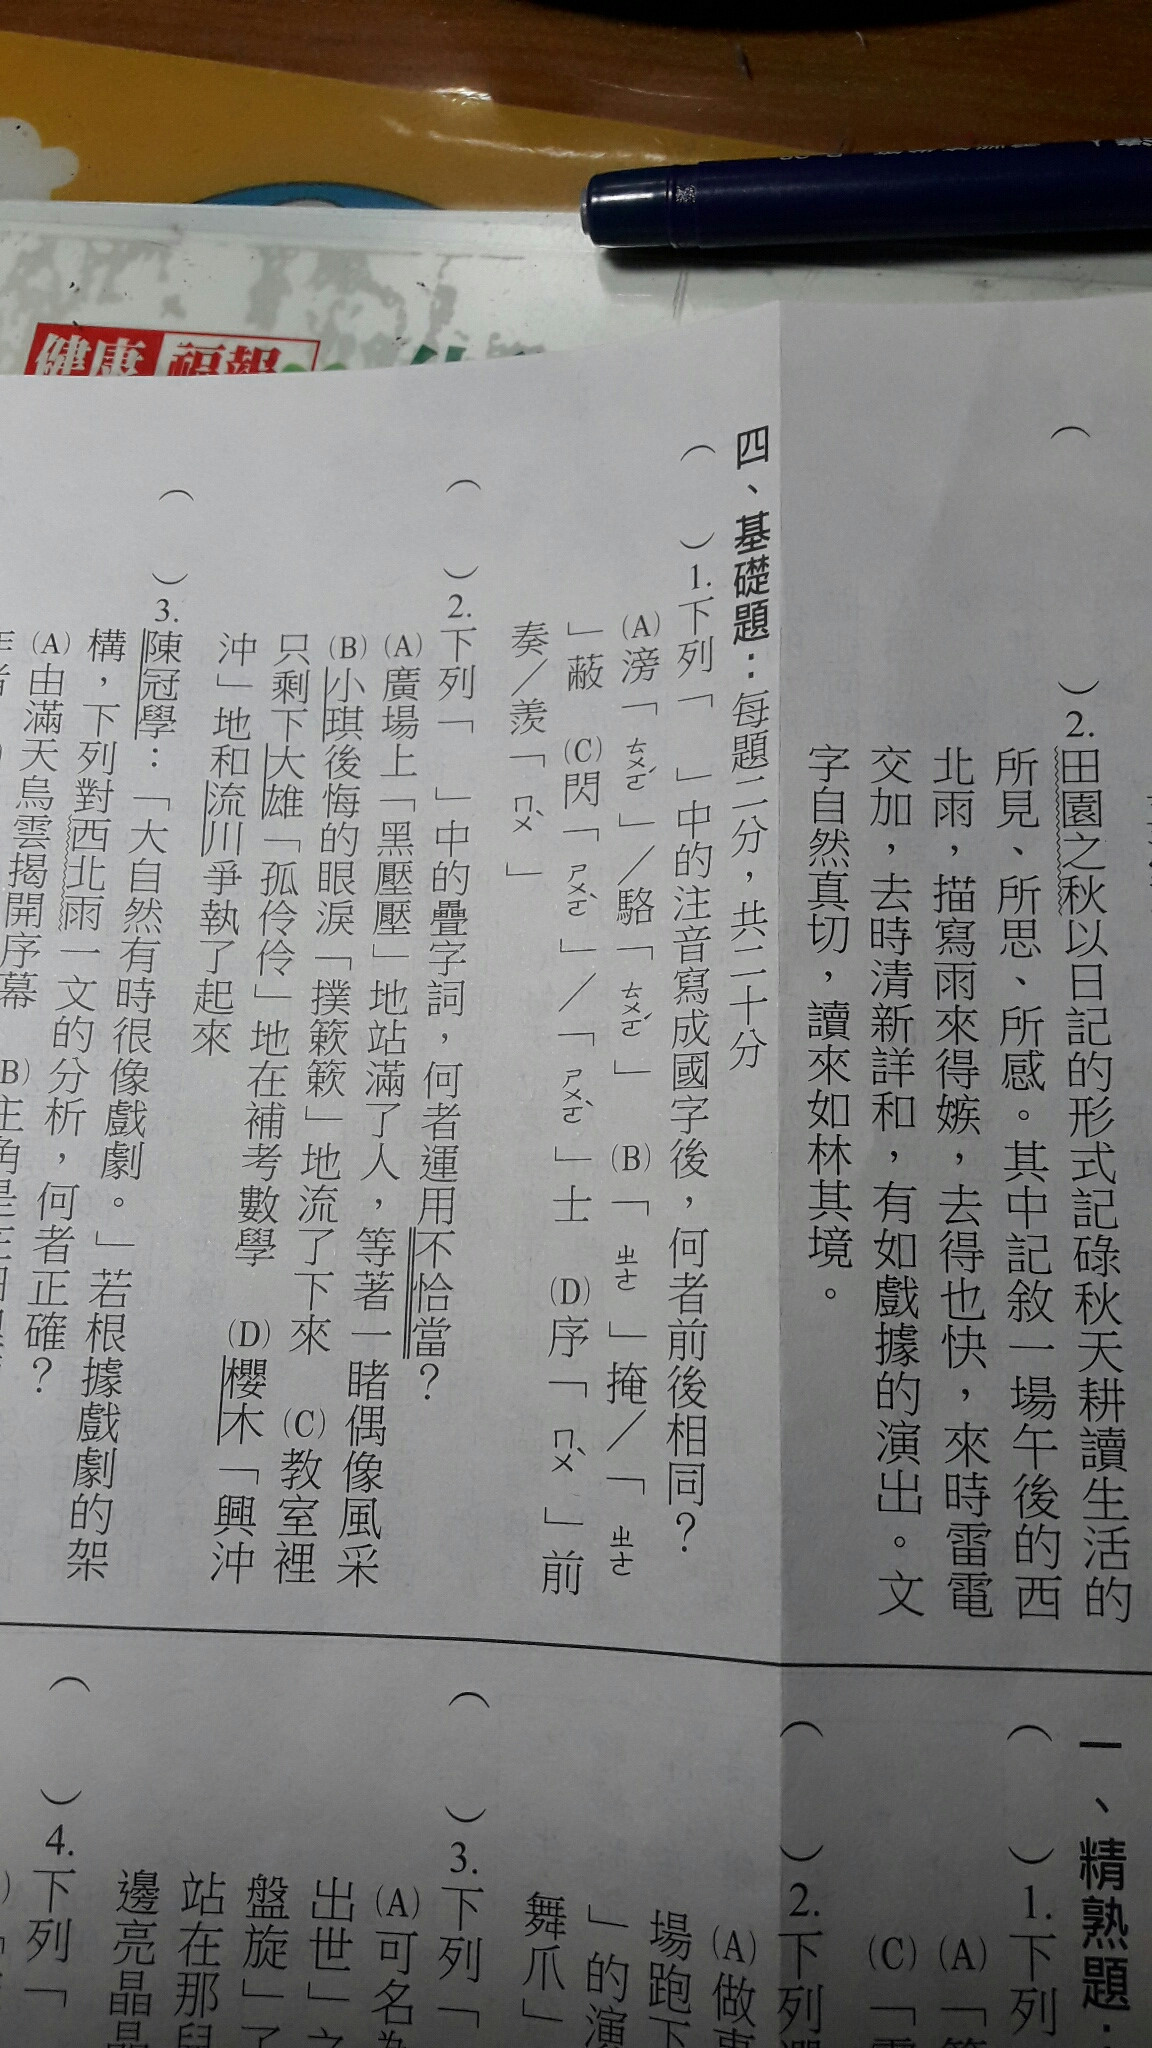 健康福報
2.田園之秋以日記的形式記碌秋天耕讀生活的
所見、所思、所感。其中記敘一場午後的西
北雨，描寫雨來得嫉，去得也快，來時雷電
交加，去時清新詳和，有如戲據的演出。文
字自然真切，讀來如林其境。
四、基礎題：每題二分，共二十分
（　）1.下列「　」中的注音寫成國字後，何者前後相同？
(A)滂「ㄊㄨㄛˊ」／駱「ㄊㄨㄛˊ」　(B)「ㄓㄜ」掩／「ㄓㄜ
」蔽　(C)閃「ㄕㄨㄛˋ」／「ㄕㄨㄛˋ」士　(D)序「ㄇㄨˋ」前
奏／羨「ㄇㄨˋ」
（　）2.下列「　」中的疊字詞，何者運用不恰當？
(A)廣場上「黑壓壓」地站滿了人，等著一睹偶像風采
(B)小琪後悔的眼淚「撲簌簌」地流了下來　(C)教室裡
只剩下大雄「孤伶伶」地在補考數學　(D)櫻木「興沖
沖」地和流川爭執了起來
（　）3.陳冠學：「大自然有時很像戲劇。」若根據戲劇的架
構，下列對西北雨一文的分析，何者正確？
(A)由滿天烏雲揭開序幕
一、精熟題：
（　）1.下列
(A)「
(C)「
（　）2.下列
(A)做事
場跑下
」的演
舞爪」
（　）3.下列「
(A)可名為
出世」之
盤旋」了
站在那兒
邊亮晶晶
（　）4.下列「